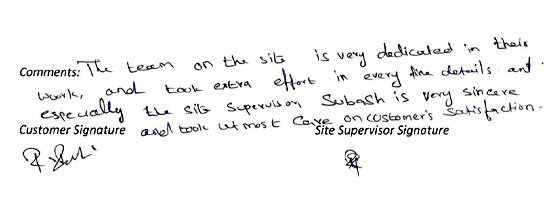 Comments: The team on the site is very dedicated in their
work, and took extra effort in every fine details and
especially the site supervisor, Subash is very sincere
and took utmost care on customer's satisfaction.
Customer Signature Site Supervisor Signature